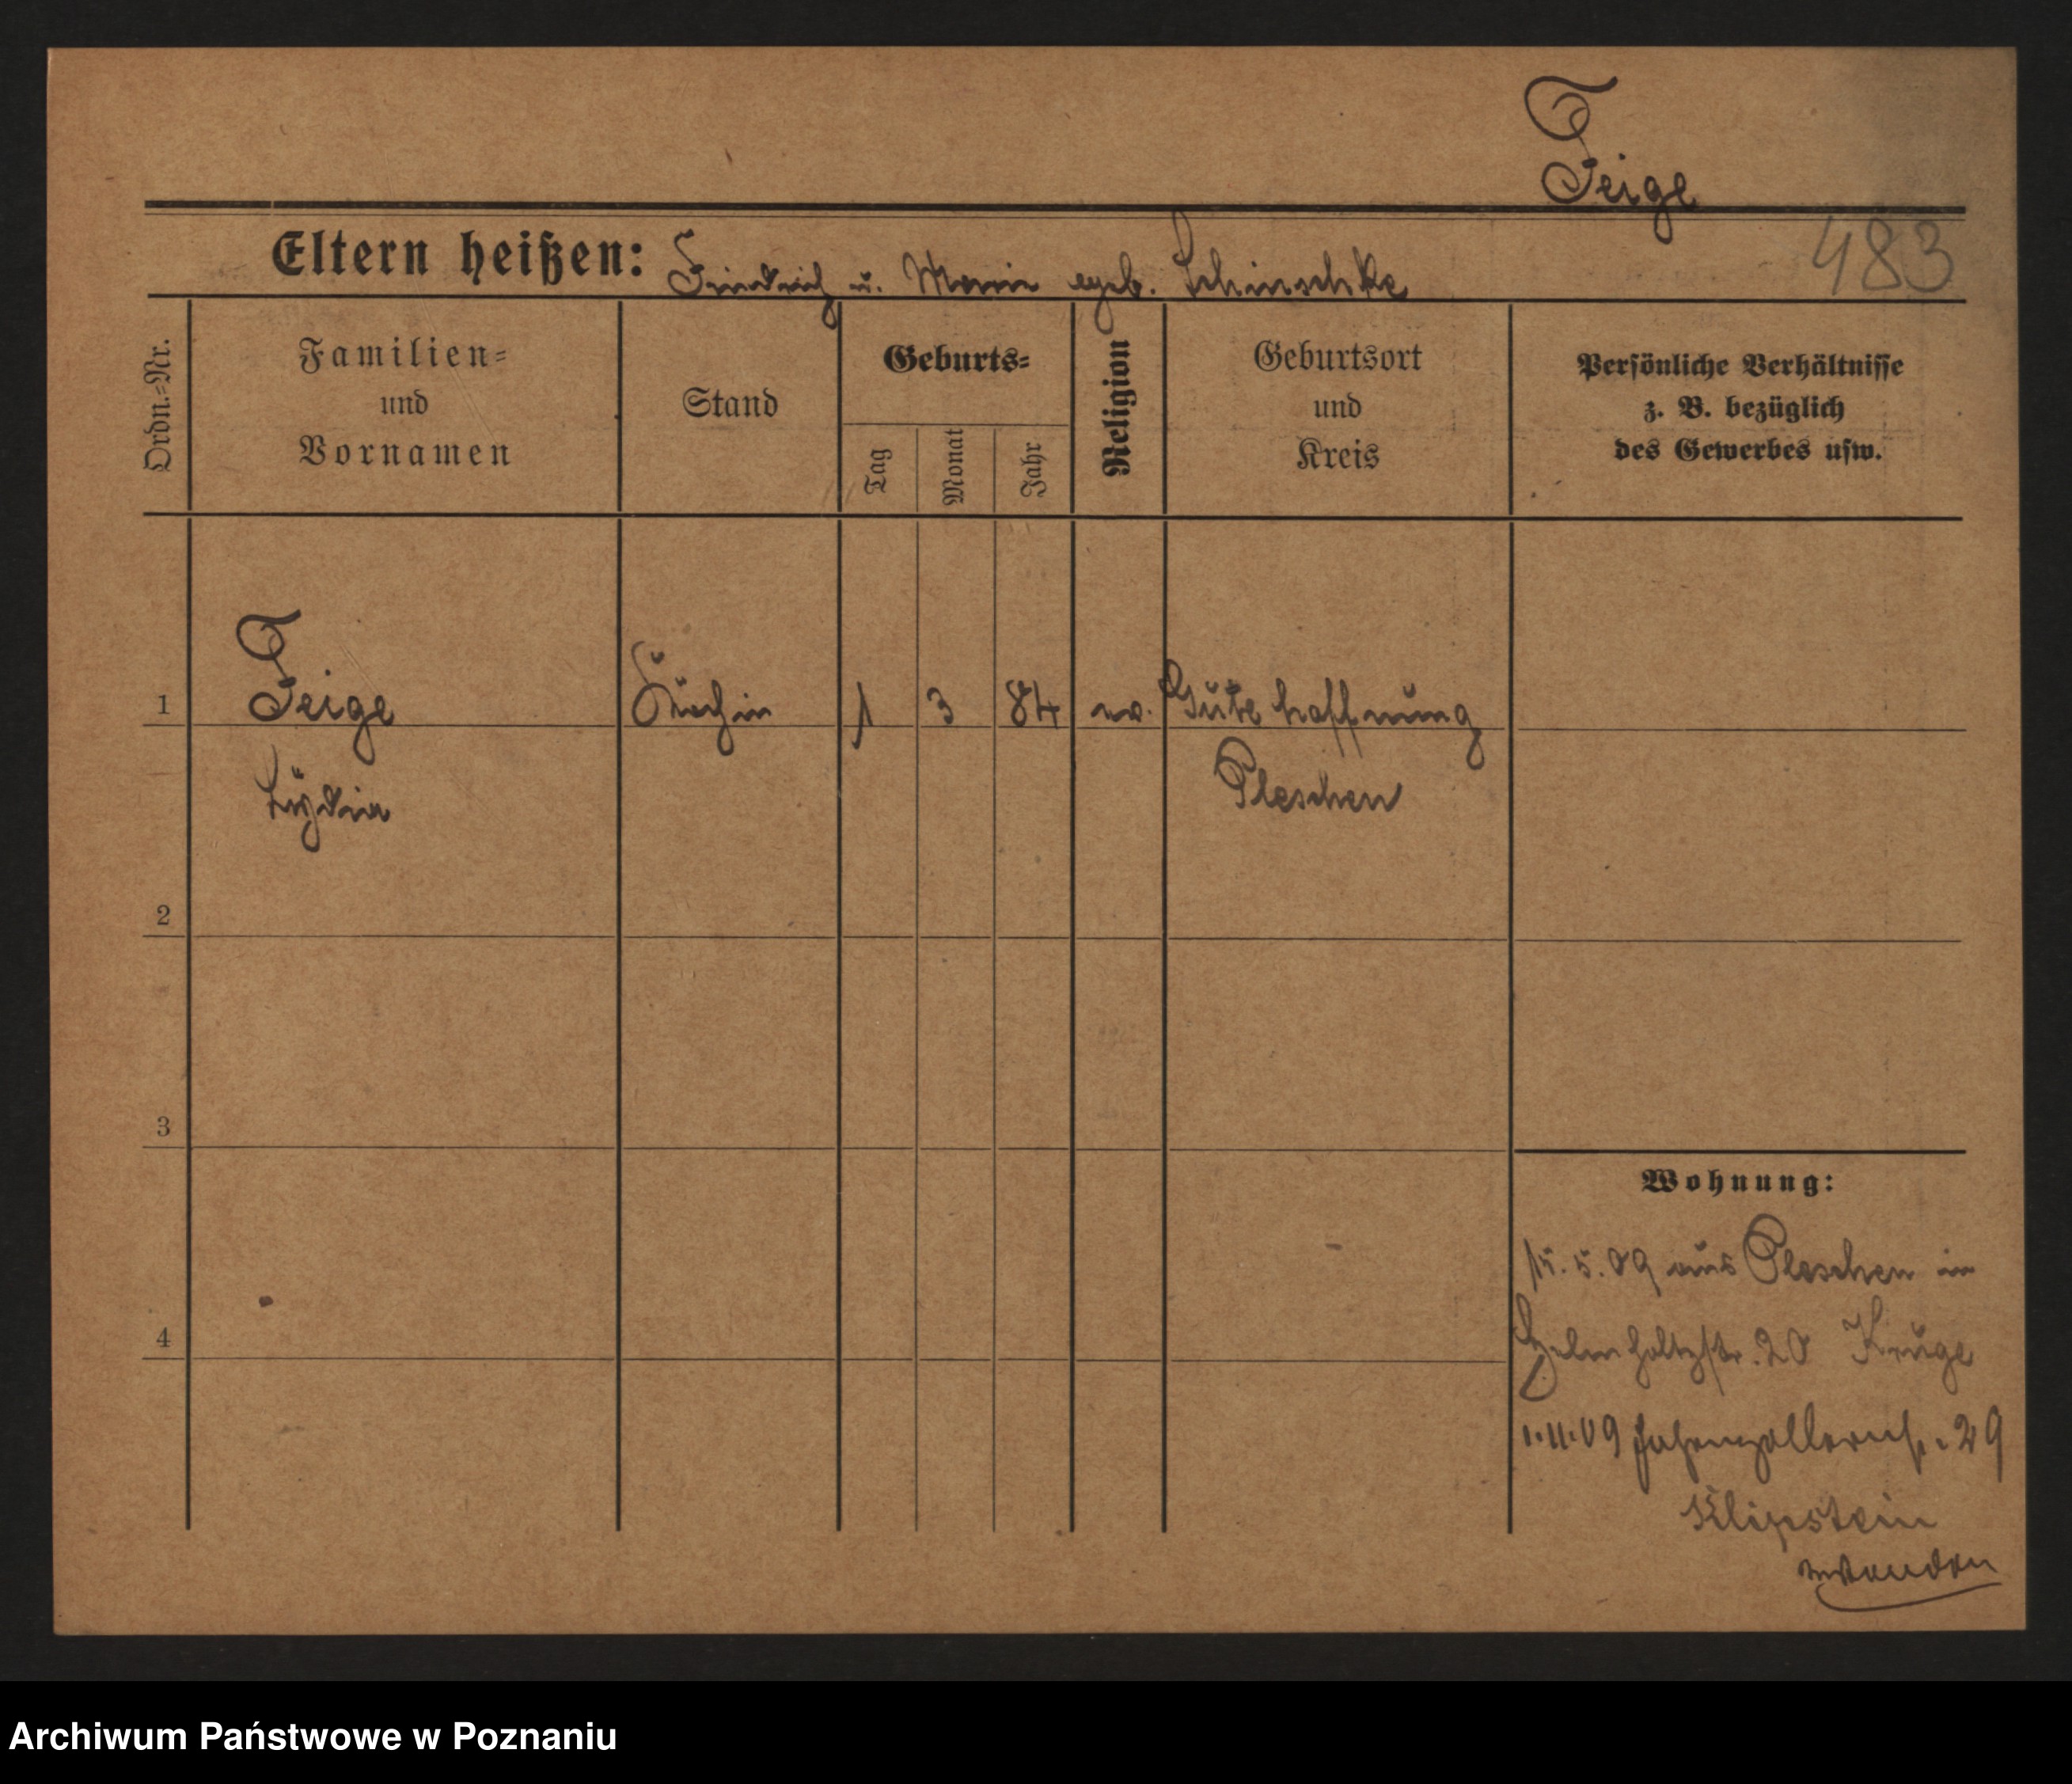 Teige
483
Eltern heißen: Friedrich u. Marie geb. Schinschke
Ordn.=Nr.
Familien=
und
Vornamen
Stand
Geburts=
Tag
Monat
Jahr
Religion
Geburtsort
und
Kreis
Persönliche Verhältnisse
z. B. bezüglich
des Gewerbes usw.
1 Teige Köchin 1 3 84 ev. Gutehoffnung
Lydia Pleschen
2
3
4
Wohnung:
15.5.09 aus Pleschen in
Helmholtzstr. 20 Kruge
1.11.09 Hohenzollernstr. 29
Klipstein
wenden
Archiwum Państwowe w Poznaniu